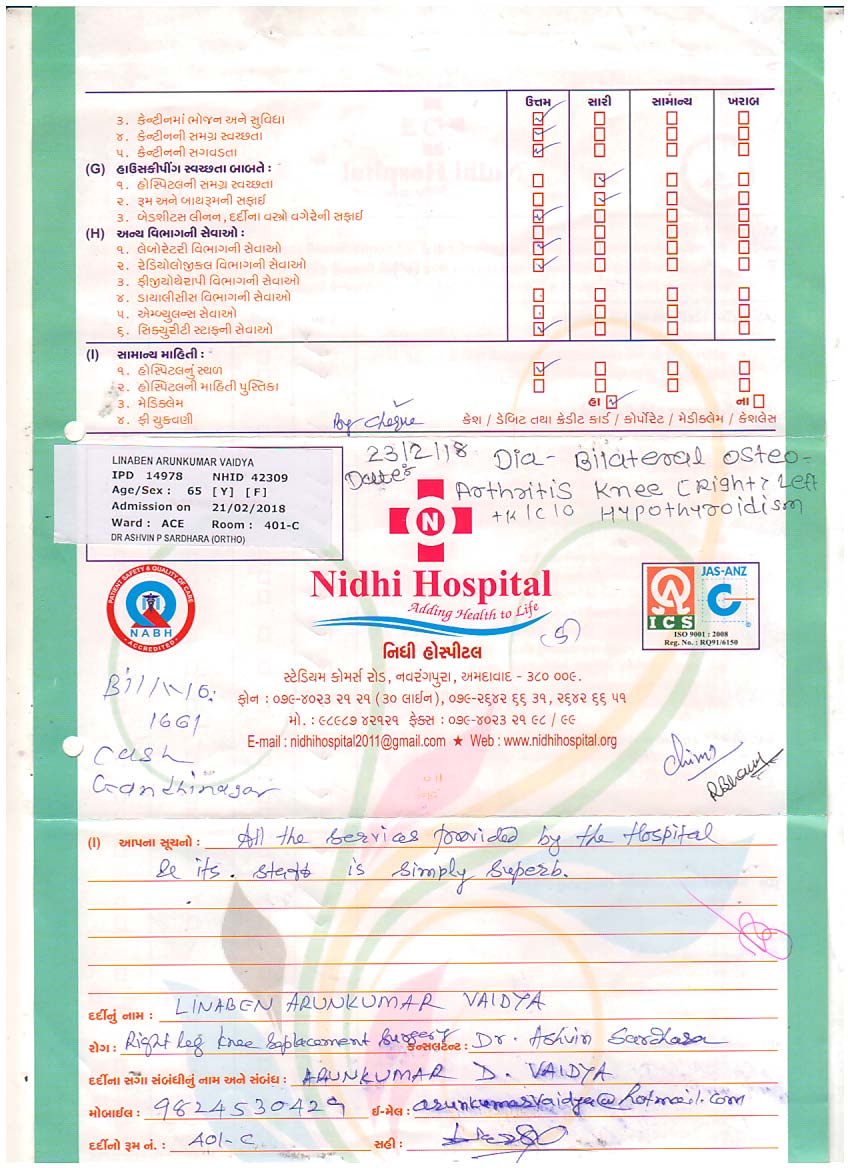 ઉત્તમ સારી સામાન્ય ખરાબ
૩. કેન્ટીનમાં ભોજન અને સુવિધા
૪. કેન્ટીનની સમગ્ર સ્વચ્છતા
૫. કેન્ટીનની સગવડતા
(G) હાઉસકીપીંગ સ્વચ્છતા બાબતે :
૧. હોસ્પિટલની સમગ્ર સ્વચ્છતા
૨. રૂમ અને બાથરૂમની સફાઈ
૩. બેડશીટસ લીનન, દર્દીના વસ્ત્રો વગેરેની સફાઈ
(H) અન્ય વિભાગની સેવાઓ :
૧. લેબોરેટરી વિભાગની સેવાઓ
૨. રેડિયોલોજીકલ વિભાગની સેવાઓ
૩. ફીઝીયોથેરાપી વિભાગની સેવાઓ
૪. ડાયાલીસીસ વિભાગની સેવાઓ
૫. એમ્બ્યુલન્સ સેવાઓ
૬. સિક્યુરીટી સ્ટાફની સેવાઓ
(I) સામાન્ય માહિતી :
૧. હોસ્પિટલનું સ્થળ
૨. હોસ્પિટલની માહિતી પુસ્તિકા
૩. મેડિક્લેમ હા ના
૪. ફી ચુકવણી By cheque કેશ / ડેબિટ તથા ક્રેડીટ કાર્ડ / કોર્પોરેટ / મેડીકલેમ / કેશલેસ
LINABEN ARUNKUMAR VAIDYA
IPD 14978 NHID 42309
Age/Sex : 65 [Y] [F]
Admission on 21/02/2018
Ward : ACE Room : 401-C
DR ASHVIN P SARDHARA (ORTHO)
23/2/18
Date:
Dia - Bilateral Osteo-
Arthritis Knee (Right > Left
+ K/C/O Hypothyroidism
N
Nidhi Hospital
Adding Health to Life
PATIENT SAFETY & QUALITY OF CARE
NABH
ACCREDITED
JAS-ANZ
ICS
ISO 9001 : 2008
Reg. No. : RQ91/6150
નિધી હોસ્પીટલ
સ્ટેડિયમ કોમર્સ રોડ, નવરંગપુરા, અમદાવાદ - ૩૮૦ ૦૦૯.
ફોન : ૦૭૯-૪૦૨૩ ૨૧ ૨૧ (૩૦ લાઈન), ૦૭૯-૨૬૪૨ ૬૬ ૩૧, ૨૬૪૨ ૬૬ ૫૧
મો. : ૯૮૯૮૭ ૪૨૧૨૧ ફેક્સ : ૦૭૯-૪૦૨૩ ૨૧ ૯૮ / ૯૯
E-mail : nidhihospital2011@gmail.com ★ Web : www.nidhihospital.org
Bill No:
1661
Cash
Gandhinagar
(I) આપના સૂચનો : All the services provided by the Hospital
& its. staff is simply superb.
દર્દીનું નામ : LINABEN ARUNKUMAR VAIDYA
રોગ : Right leg knee Replacement Surgery કન્સલટન્ટ : Dr. Ashvin Sardhara
દર્દીના સગા સંબંધીનું નામ અને સંબંધ : ARUNKUMAR D. VAIDYA
મોબાઈલ : 9824530429 ઈ-મેલ : arunkumarvaidya@hotmail.com
દર્દીનો રૂમ નં. : 401-C સહી :